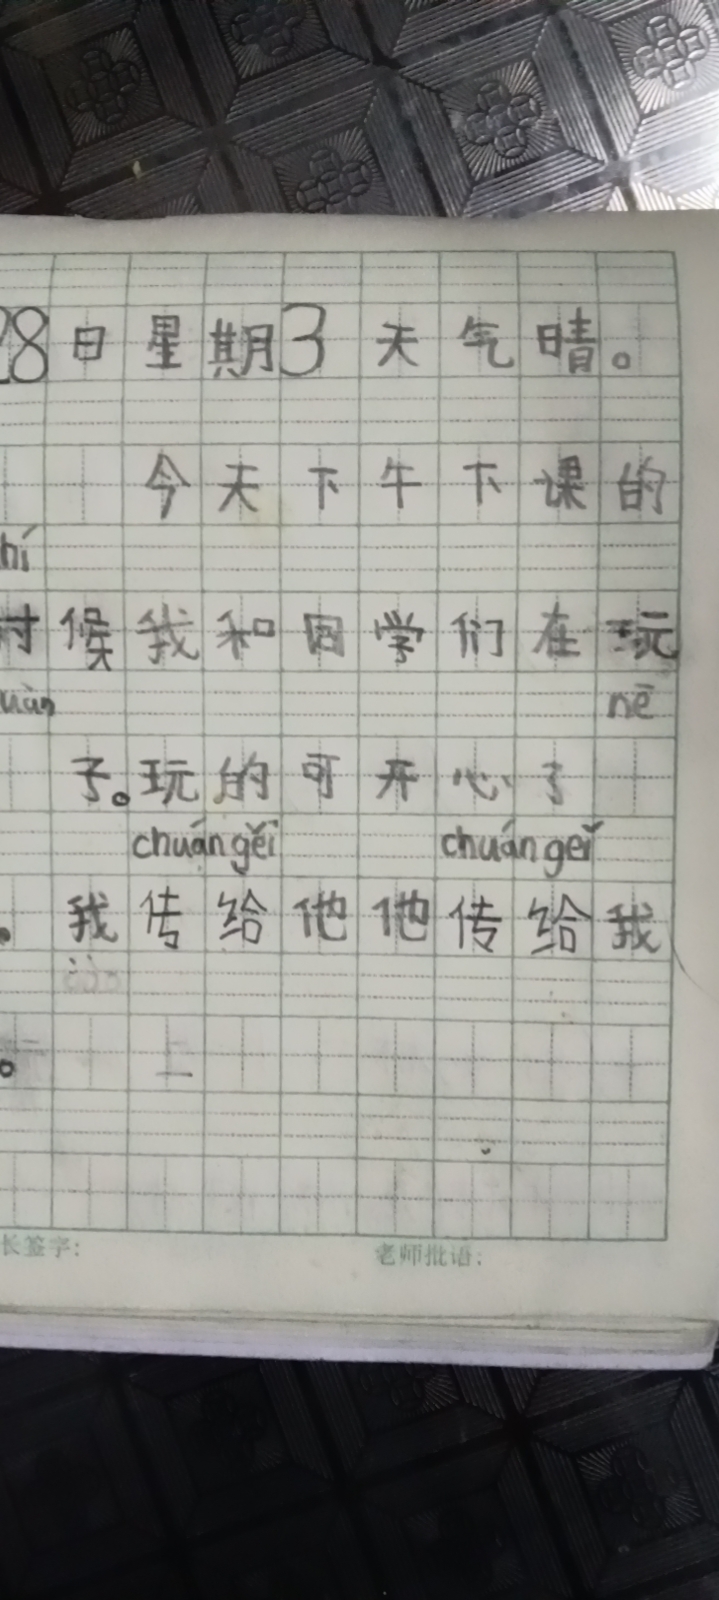 28日星期3天气晴。
今天下午下课的
hí
时候我和同学们在玩
uàn nē
子。玩的可开心了
chuán gěi chuán gěi
。我传给他他传给我
。
长签字: 老师批语: